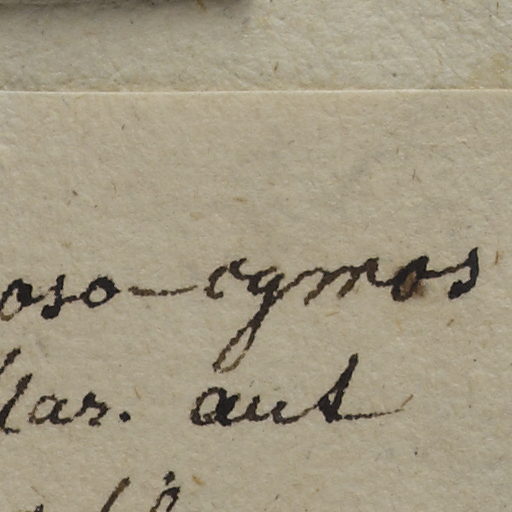 oso-cymos
llar. aut